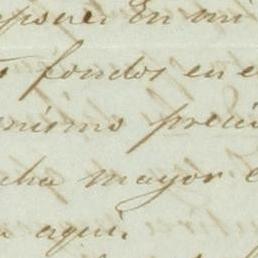 En mi
fondos en e
mismo preci
cha mayor e
aqui.